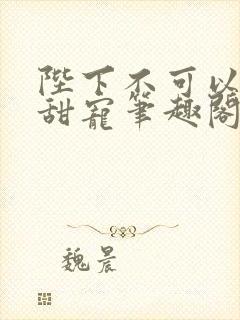 陛下不可以
甜宠笔趣阁
魏晨